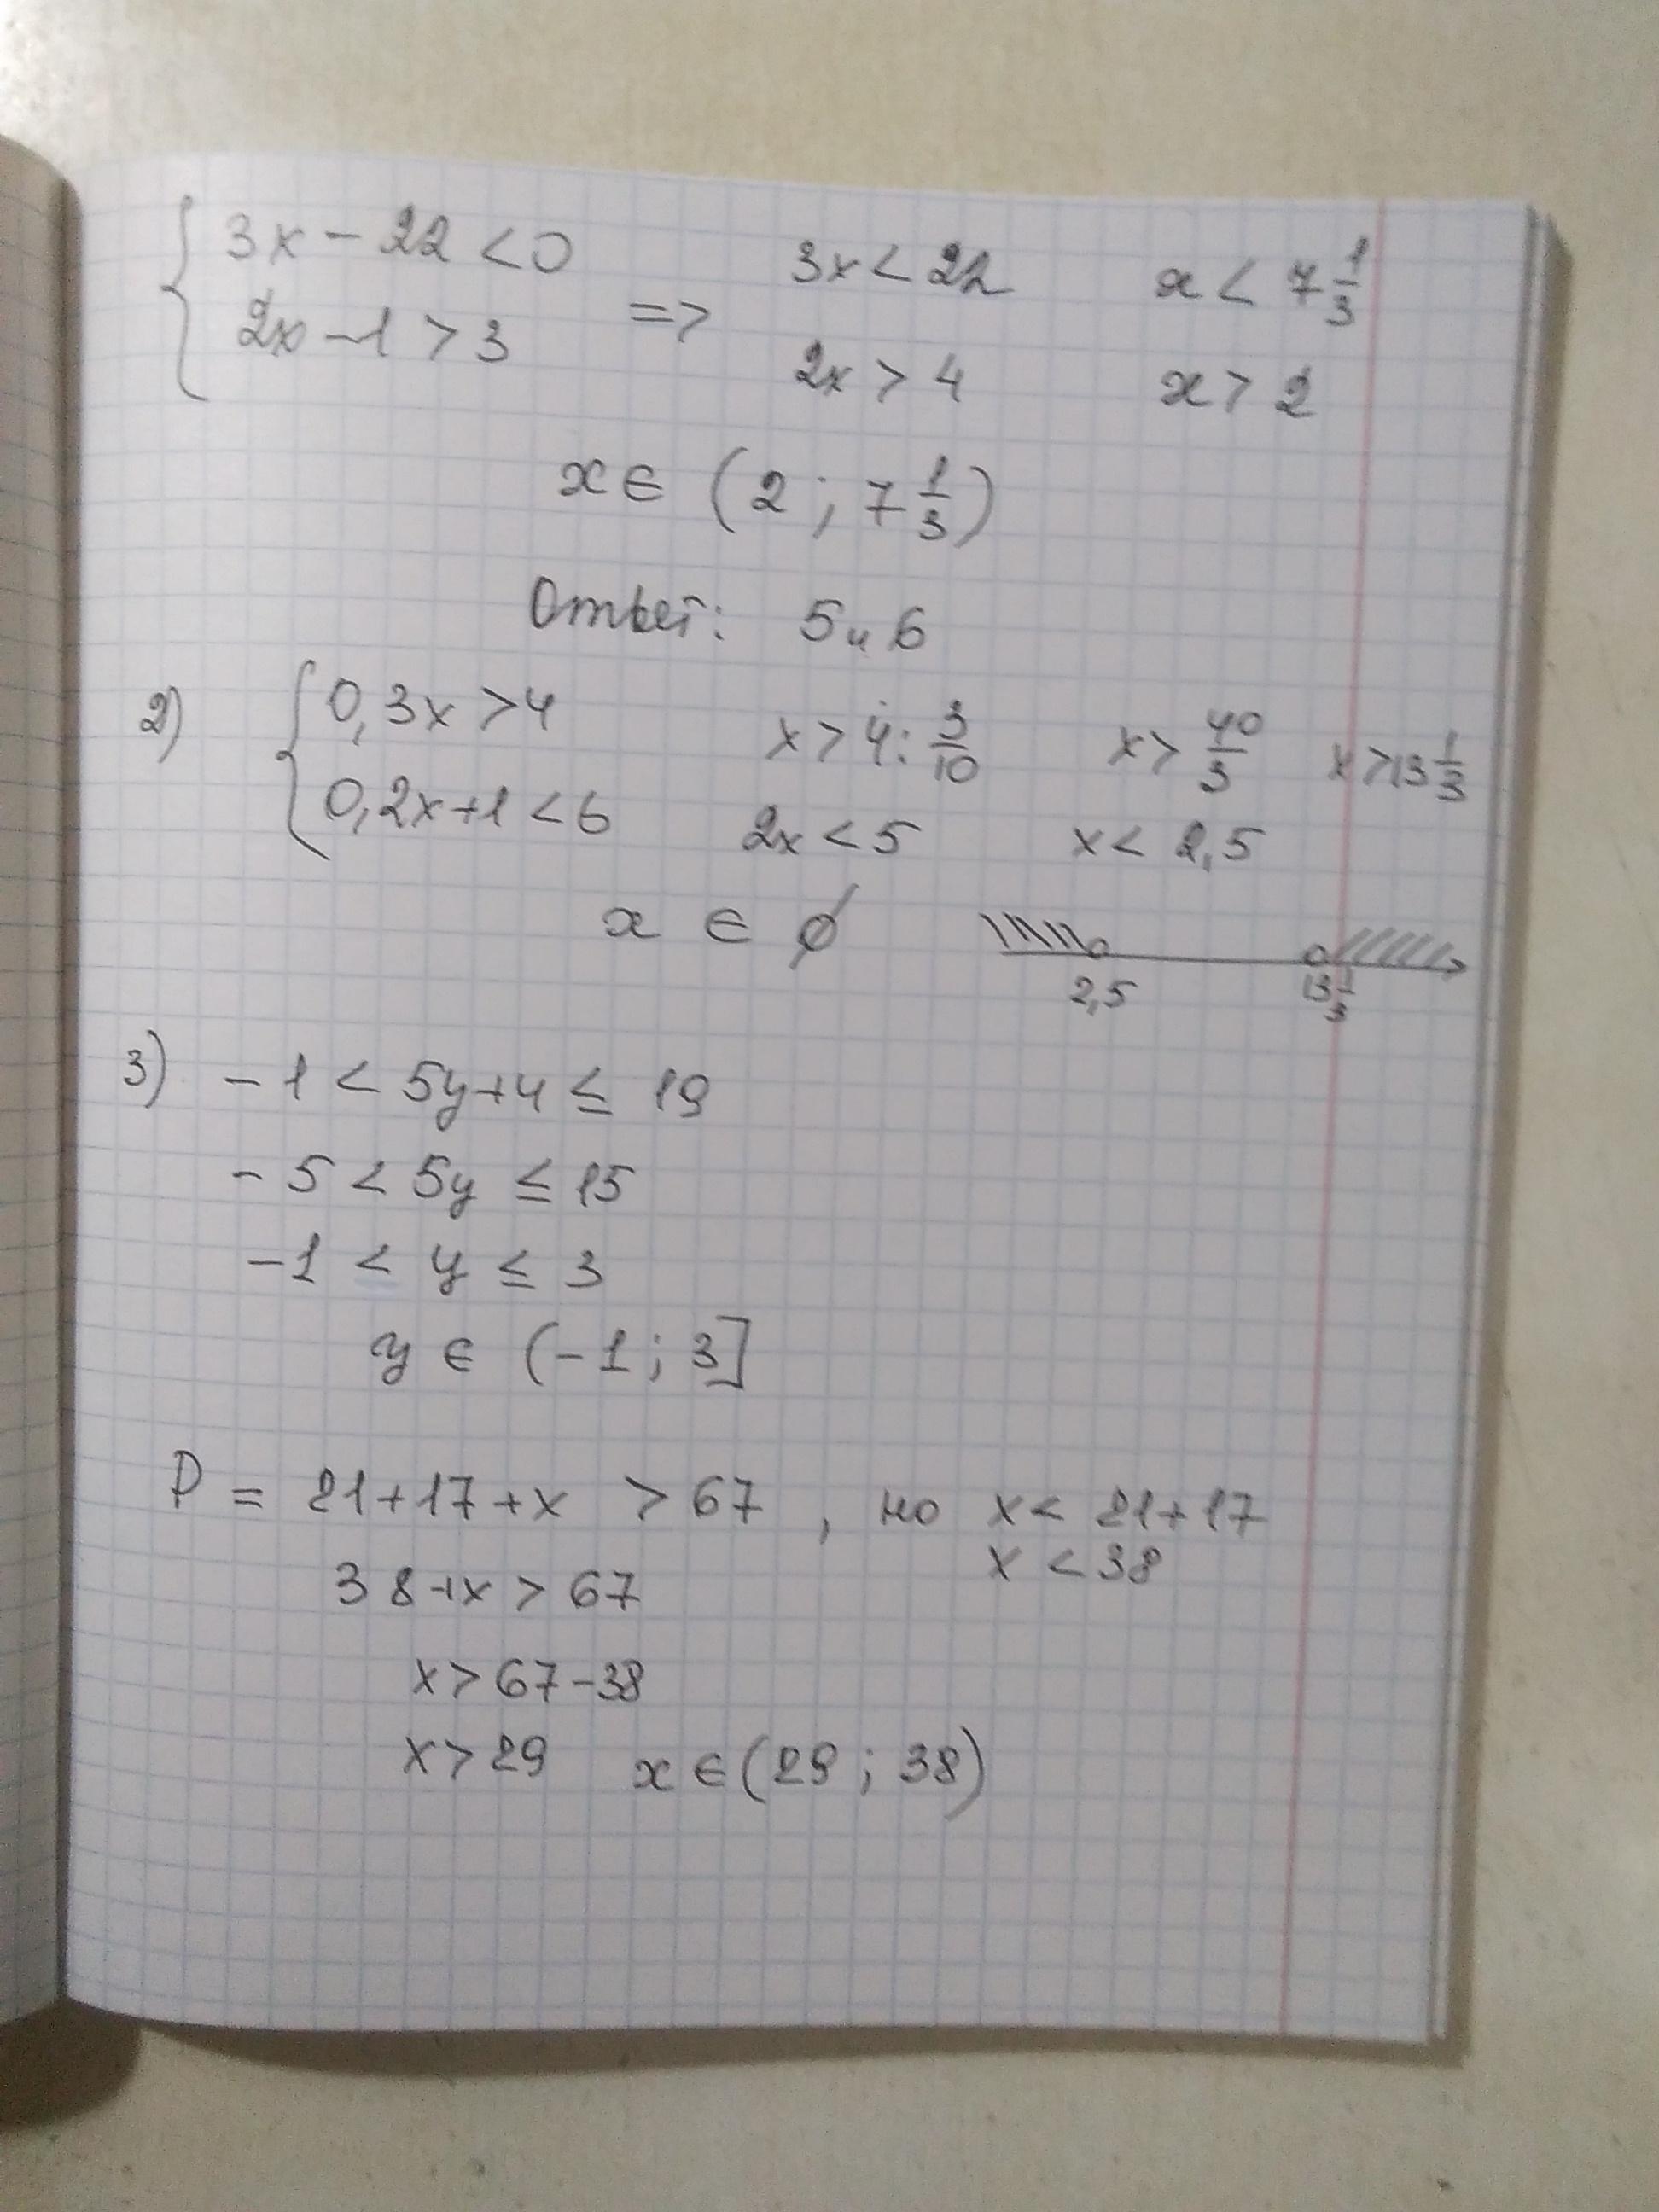 { 3x - 22 < 0 => 3x < 22 x < 7 1/3
2x - 1 > 3 2x > 4 x > 2
x ∈ (2 ; 7 1/3)
Ответ: 5 и 6
2) { 0,3x > 4 x > 4 : 3/10 x > 40/3 x > 13 1/3
0,2x + 1 < 6 2x < 5 x < 2,5
x ∈ ∅
2,5 13 1/3
3) - 1 < 5y + 4 ≤ 19
- 5 < 5y ≤ 15
- 1 < y ≤ 3
y ∈ (- 1 ; 3]
P = 21 + 17 + x > 67 , но x < 21 + 17
x < 38
38 + x > 67
x > 67 - 38
x > 29 x ∈ (29 ; 38)